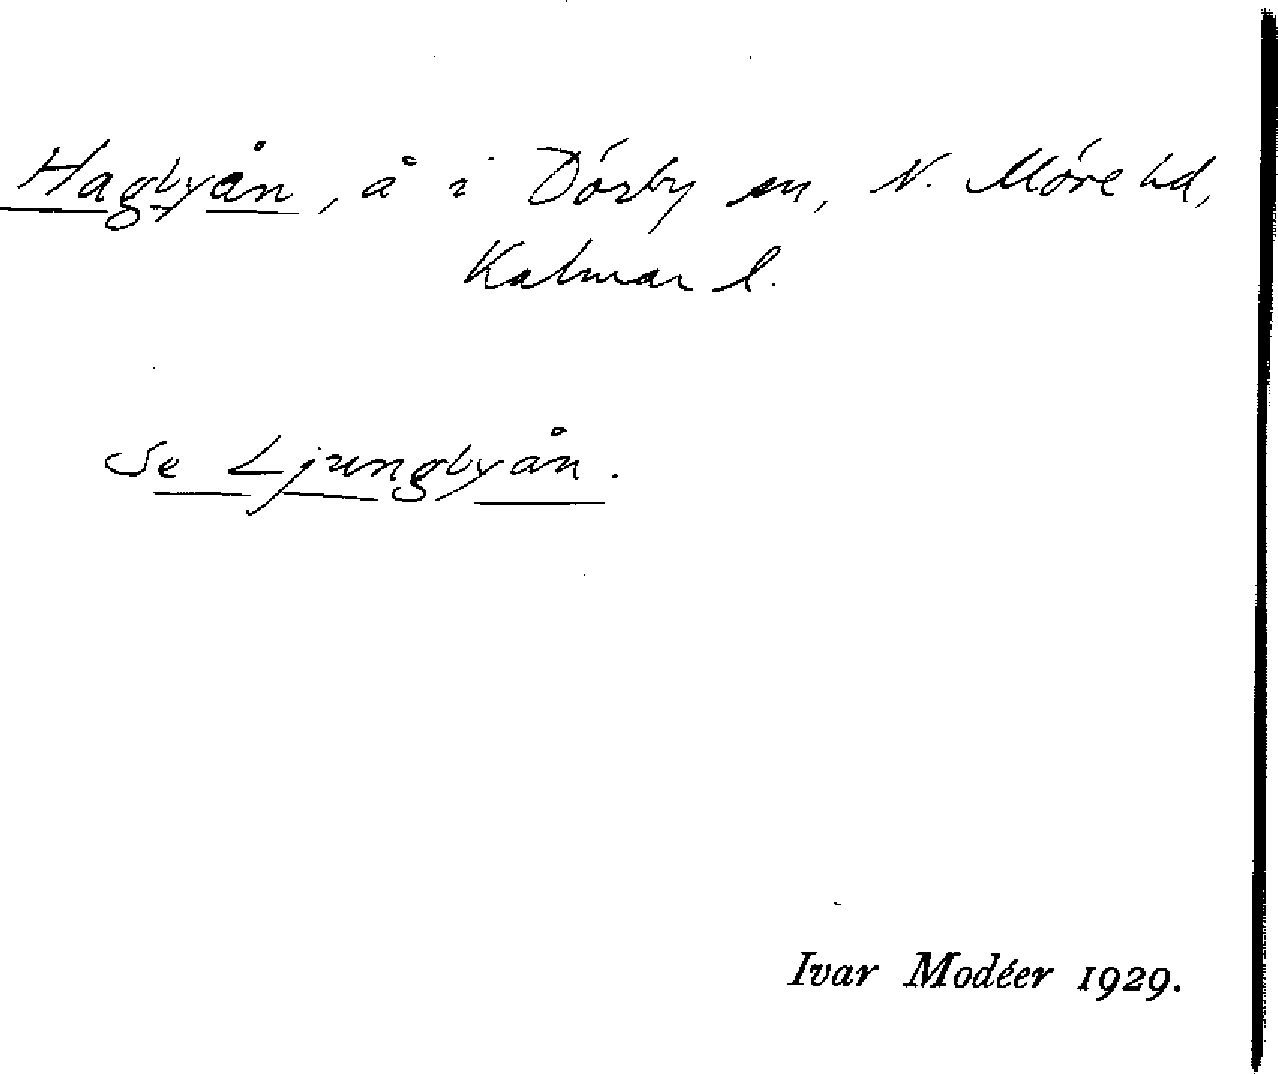 Hagbyån, å i Dörby sn, N. Möre hd,
Kalmar l.
Se Ljungbyån.
Ivar Modéer 1929.